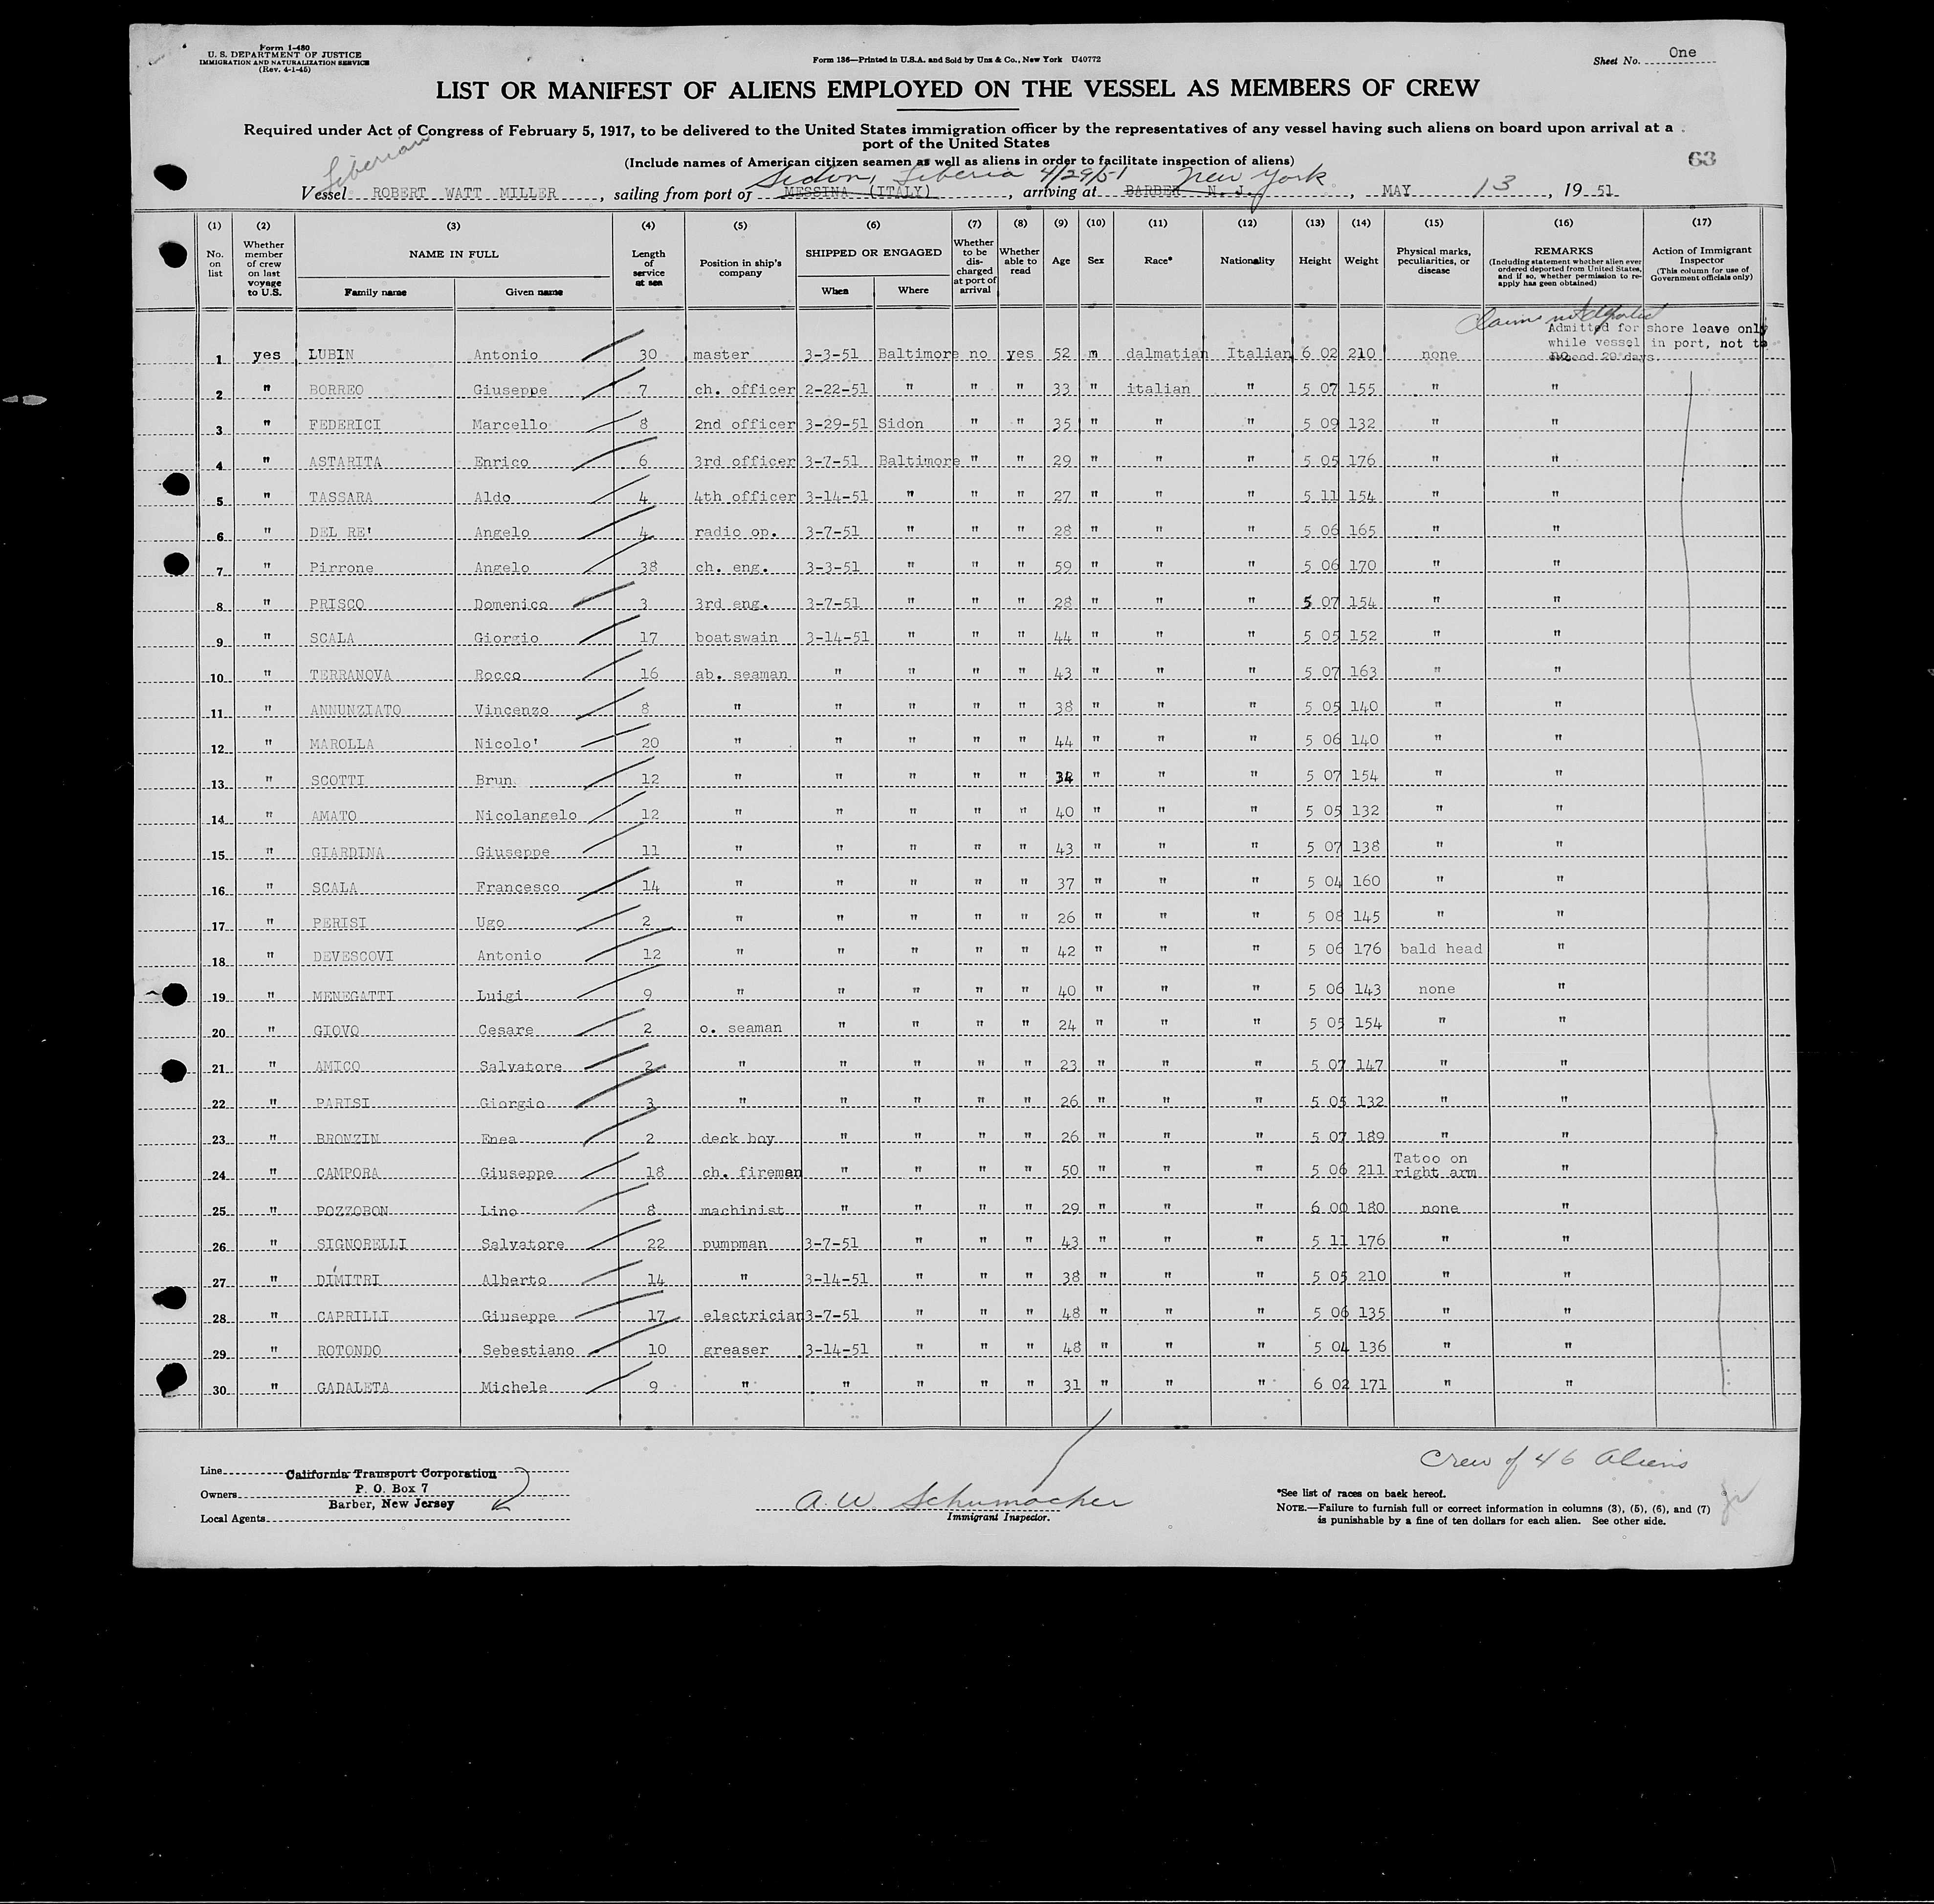 Form I-480
U. S. DEPARTMENT OF JUSTICE
IMMIGRATION AND NATURALIZATION SERVICE
(Rev. 4-1-45)
Form 136—Printed in U.S.A. and Sold by Unz & Co., New York U40772
Sheet No. One
LIST OR MANIFEST OF ALIENS EMPLOYED ON THE VESSEL AS MEMBERS OF CREW
Required under Act of Congress of February 5, 1917, to be delivered to the United States immigration officer by the representatives of any vessel having such aliens on board upon arrival at a
port of the United States
(Include names of American citizen seamen as well as aliens in order to facilitate inspection of aliens)
63
Liberian
Sidon, Liberia 4/29/51 New York
Vessel ROBERT WATT MILLER, sailing from port of MESSINA (ITALY), arriving at BARBER N. J., MAY 13, 19 51
(1) (2) (3) (4) (5) (6) (7) (8) (9) (10) (11) (12) (13) (14) (15) (16) (17)
No. on list
Whether member of crew on last voyage to U.S.
NAME IN FULL
Family name Given name
Length of service at sea
Position in ship's company
SHIPPED OR ENGAGED
When Where
Whether to be discharged at port of arrival
Whether able to read
Age Sex Race* Nationality Height Weight
Physical marks, peculiarities, or disease
REMARKS
(Including statement whether alien ever ordered deported from United States, and if so, whether permission to re-apply has geen obtained)
Action of Immigrant Inspector
(This column for use of Government officials only)
Claims not deported
Admitted for shore leave only
while vessel in port, not to
exceed 29 days.
1 yes LUBIN Antonio 30 master 3-3-51 Baltimore no yes 52 m dalmatian Italian 6 02 210 none no
2 " BORREO Giuseppe 7 ch. officer 2-22-51 " " " 33 " italian " 5 07 155 " "
3 " FEDERICI Marcello 8 2nd officer 3-29-51 Sidon " " 35 " " " 5 09 132 " "
4 " ASTARITA Enrico 6 3rd officer 3-7-51 Baltimore " " 29 " " " 5 05 176 " "
5 " TASSARA Aldo 4 4th officer 3-14-51 " " " 27 " " " 5 11 154 " "
6 " DEL RE' Angelo 4 radio op. 3-7-51 " " " 28 " " " 5 06 165 " "
7 " Pirrone Angelo 38 ch. eng. 3-3-51 " " " 59 " " " 5 06 170 " "
8 " PRISCO Domenico 3 3rd eng. 3-7-51 " " " 28 " " " 5 07 154 " "
9 " SCALA Giorgio 17 boatswain 3-14-51 " " " 44 " " " 5 05 152 " "
10 " TERRANOVA Rocco 16 ab. seaman " " " " 43 " " " 5 07 163 " "
11 " ANNUNZIATO Vincenzo 8 " " " " " 38 " " " 5 05 140 " "
12 " MAROLLA Nicolo' 20 " " " " " 44 " " " 5 06 140 " "
13 " SCOTTI Brun 12 " " " " " 34 " " " 5 07 154 " "
14 " AMATO Nicolangelo 12 " " " " " 40 " " " 5 05 132 " "
15 " GIARDINA Giuseppe 11 " " " " " 43 " " " 5 07 138 " "
16 " SCALA Francesco 14 " " " " " 37 " " " 5 04 160 " "
17 " PERISI Ugo 2 " " " " " 26 " " " 5 08 145 " "
18 " DEVESCOVI Antonio 12 " " " " " 42 " " " 5 06 176 bald head "
19 " MENEGATTI Luigi 9 " " " " " 40 " " " 5 06 143 none "
20 " GIOVO Cesare 2 o. seaman " " " " 24 " " " 5 05 154 " "
21 " AMICO Salvatore 2 " " " " " 23 " " " 5 07 147 " "
22 " PARISI Giorgio 3 " " " " " 26 " " " 5 05 132 " "
23 " BRONZIN Enea 2 deck boy " " " " 26 " " " 5 07 189 " "
24 " CAMPORA Giuseppe 18 ch. fireman " " " " 50 " " " 5 06 211 Tatoo on right arm "
25 " POZZOBON Lino 8 machinist " " " " 29 " " " 6 00 180 none "
26 " SIGNORELLI Salvatore 22 pumpman 3-7-51 " " " 43 " " " 5 11 176 " "
27 " DIMITRI Alberto 14 " 3-14-51 " " " 38 " " " 5 05 210 " "
28 " CAPRILLI Giuseppe 17 electrician 3-7-51 " " " 48 " " " 5 06 135 " "
29 " ROTONDO Sebestiano 10 greaser 3-14-51 " " " 48 " " " 5 04 136 " "
30 " GADALETA Michele 9 " " " " " 31 " " " 6 02 171 " "
Crew of 46 Aliens
Line California Transport Corporation
Owners P. O. Box 7
Barber, New Jersey
Local Agents
A W Schumacher
Immigrant Inspector.
*See list of races on back hereof.
NOTE.—Failure to furnish full or correct information in columns (3), (5), (6), and (7)
is punishable by a fine of ten dollars for each alien. See other side.